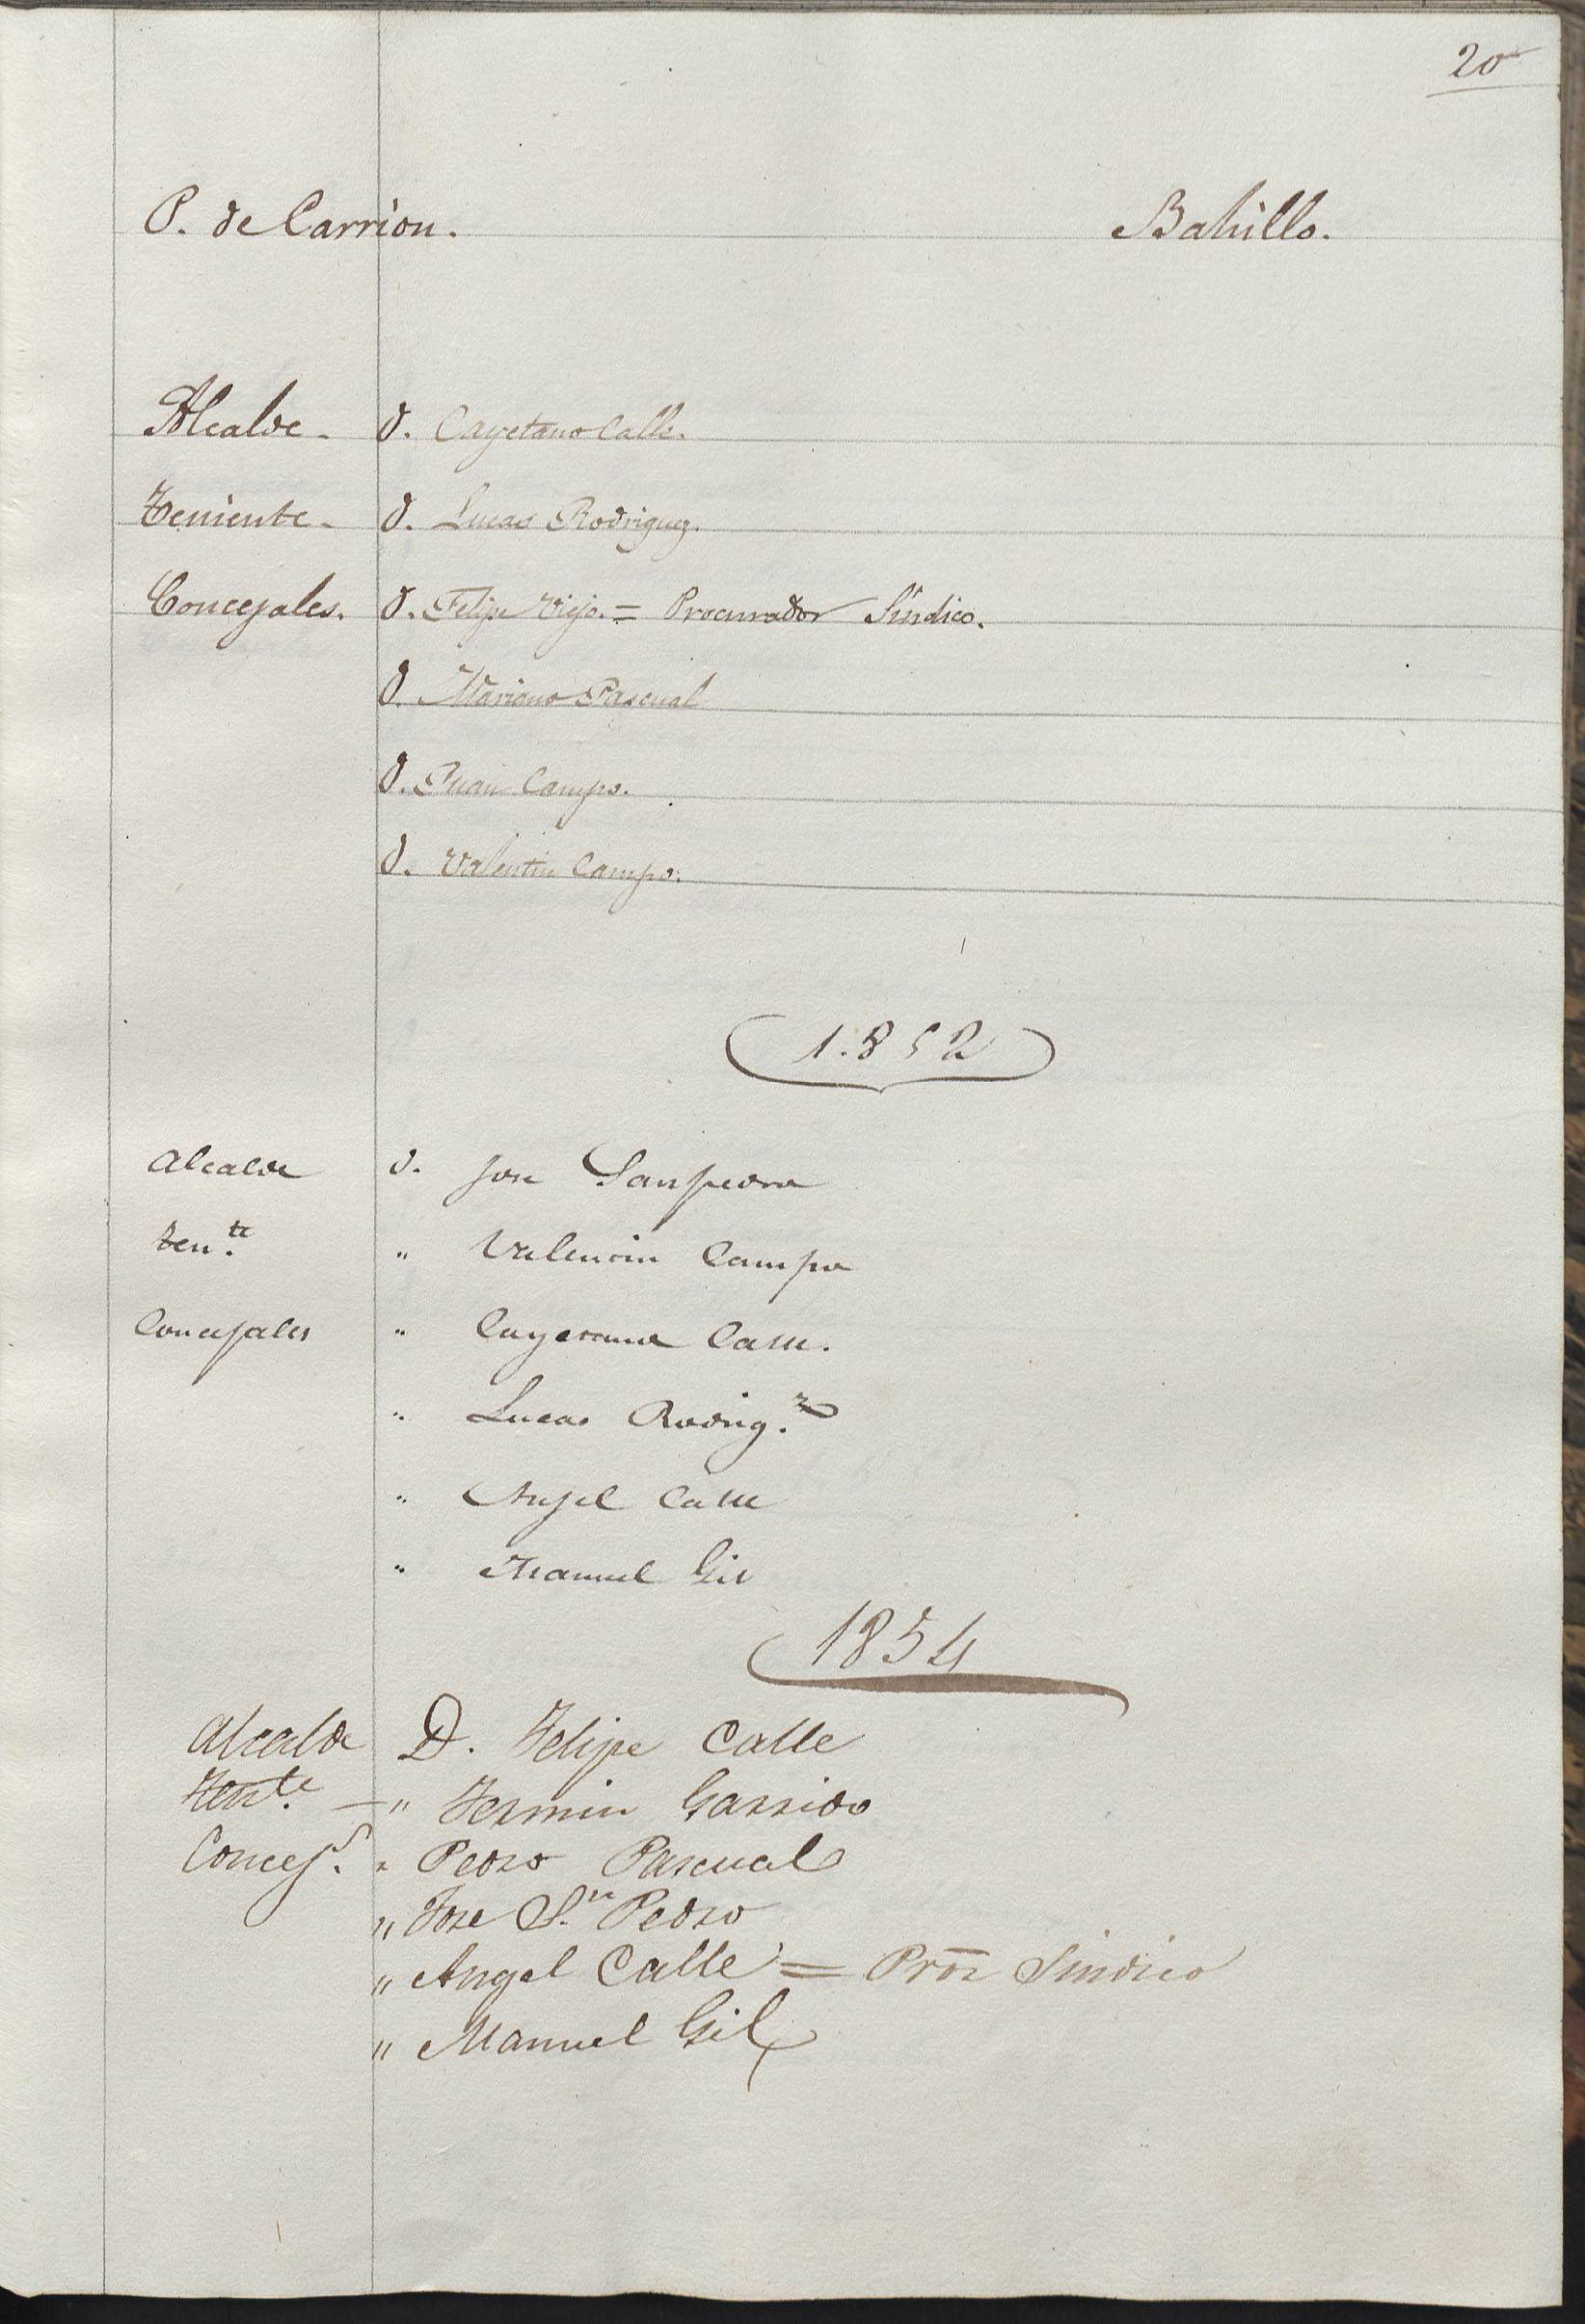 20
P. de Carrion. Bahillo.
Alcalde - D. Cayetano Calle.
Teniente - D. Lucas Rodriguez.
Concejales. D. Felipe Viejo. = Procurador Síndico.
D. Mariano Pascual
D. Juan Campo.
D. Valentin Campo.
1.852
Alcalde D. Jose Sanpedro
Ten.te " Valentin Campo
Concejales " Cayetano Calle.
" Lucas Rodrig.z
" Anjel Calle
" Manuel Gil
1854
Alcalde D. Felipe Calle
Tente. — " Fermin Garrido
Concejs. " Pedro Pascual
" Jose S.n Pedro
" Angel Calle = Pror Sindico
" Manuel Gil